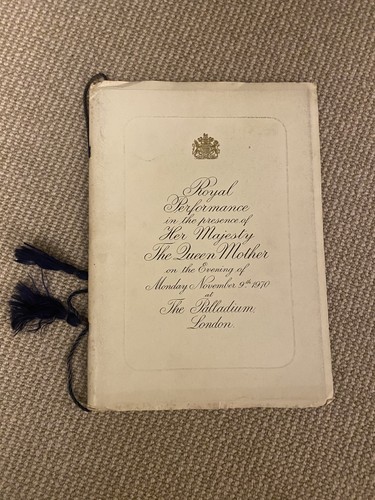 Royal
Performance
in the presence of
Her Majesty
The Queen Mother
on the Evening of
Monday November 9th 1970
at
The Palladium,
London.